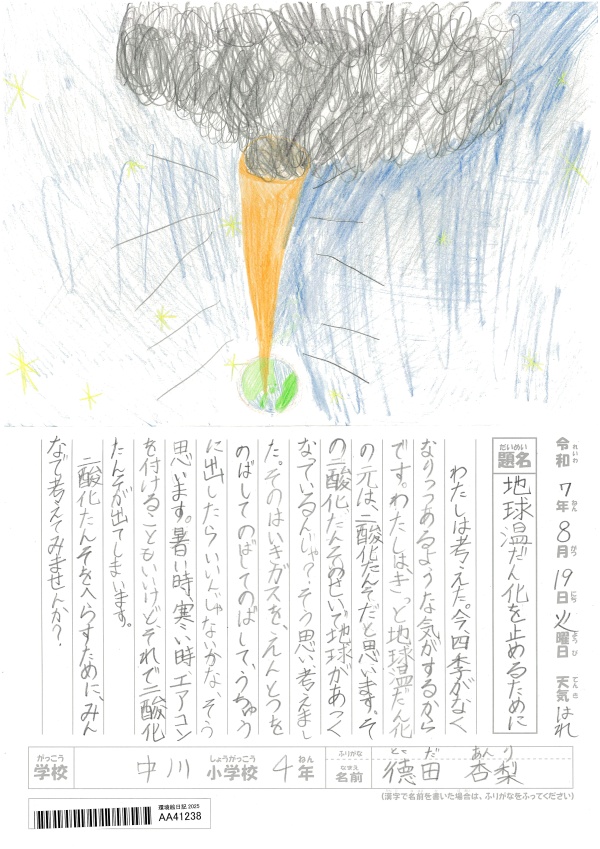 令和7年8月19日火曜日 天気はれ
れいわ ねん がつ にち ようび てんき
題名 地球温だん化を止めるために
だいめい
わたしは考えた。今、四季がなく
なりつつあるような気がするから
です。わたしは、きっと地球温だん化
の元は、二酸化たんそだと思います。そ
の二酸化たんそのせいで地球があつく
なているんじゃ?そう思い考えまし
た。そのはいきガスを、えんとつを
のばしてのばしてのばして、うちゅう
に出したらいいんじゃないかな、そう
思います。暑い時、寒い時エアコン
を付けることもいいけど、それで二酸化
たんそが出てしまいます。
二酸化たんそをへらすために、みん
なで考えてみませんか?
がっこう しょうがっこう ねん ふりがな とく だ あん り
学校 中川 小学校 4年 なまえ 名前 德田 杏梨
(漢字で名前を書いた場合は、ふりがなをふってください)
環境絵日記 2025
AA41238